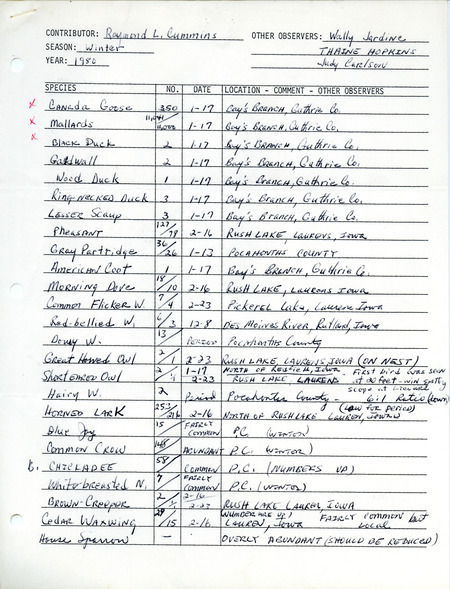 CONTRIBUTOR: Raymond L. Cummins OTHER OBSERVERS: Wally Jardine
SEASON: Winter THAINE HOPKINS
YEAR: 1980 Judy Carlson
SPECIES NO. DATE LOCATION - COMMENT - OTHER OBSERVERS
x Canada Goose 350 1-17 Bay's Branch, Guthrie Co.
x Mallards 1-17 Bay's Branch, Guthrie Co.
x Black Duck 2 1-17 Bay's Branch, Guthrie Co.
Gadwall 2 1-17 Bay's Branch, Guthrie Co.
Wood Duck 1 1-17 Bay's Branch, Guthrie Co.
Ring-necked Duck 3 1-17 Bay's Branch, Guthrie Co.
Lesser Scaup 3 1-17 Bay's Branch, Guthrie Co.
Pheasant 127/78 2-16 Rush Lake, Laurens, Iowa
Gray Partridge 36/26 1-13 Pocahontas County
American Coot 1 1-17 Bay's Branch, Guthrie Co.
Morning Dove 18/10 2-16 Rush Lake, Laurens Iowa
Common Flicker W. 7/4 2-23 Pickerel Lake, Laurens Iowa
Red-bellied W. 6/3 12-8 Des Moines River, Rutland, Iowa
Downy W. 13 Period Pocahontas County
Great Horned Owl 2/1 2-23 Rush Lake, Laurens, Iowa (ON NEST)
Short eared Owl 2/1 1-17 North of Redfield, Iowa First bird was seen
2-23 Rush Lake Laurens at 20 feet - win
scope at
Hairy W. 2 Period Pocahontas County - 6:1 Ratio (down)
(low for period)
Horned Lark 253/216 2-16 North of Rush Lake Laurens, Iowa
Blue Jay 15 Fairly Common P.C. (Winter)
Common Crow 168 Abundant P.C. (Winter)
Chickadee 58 Common P.C. (Numbers up)
White breasted N. 7 Fairly Common P.C. (Winter)
Brown-Creeper 2/1 2-16 2-23 Rush Lake Laurens, Iowa
Cedar Waxwing 29/15 2-16 Laurens, Iowa Fairly common but local
House Sparrow - Overly abundant (should be reduced)